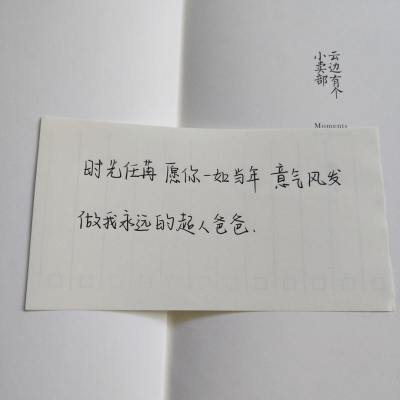 云边有个
小卖部
Moments
时光任苒 愿你一如当年 意气风发
做我永远的超人爸爸.